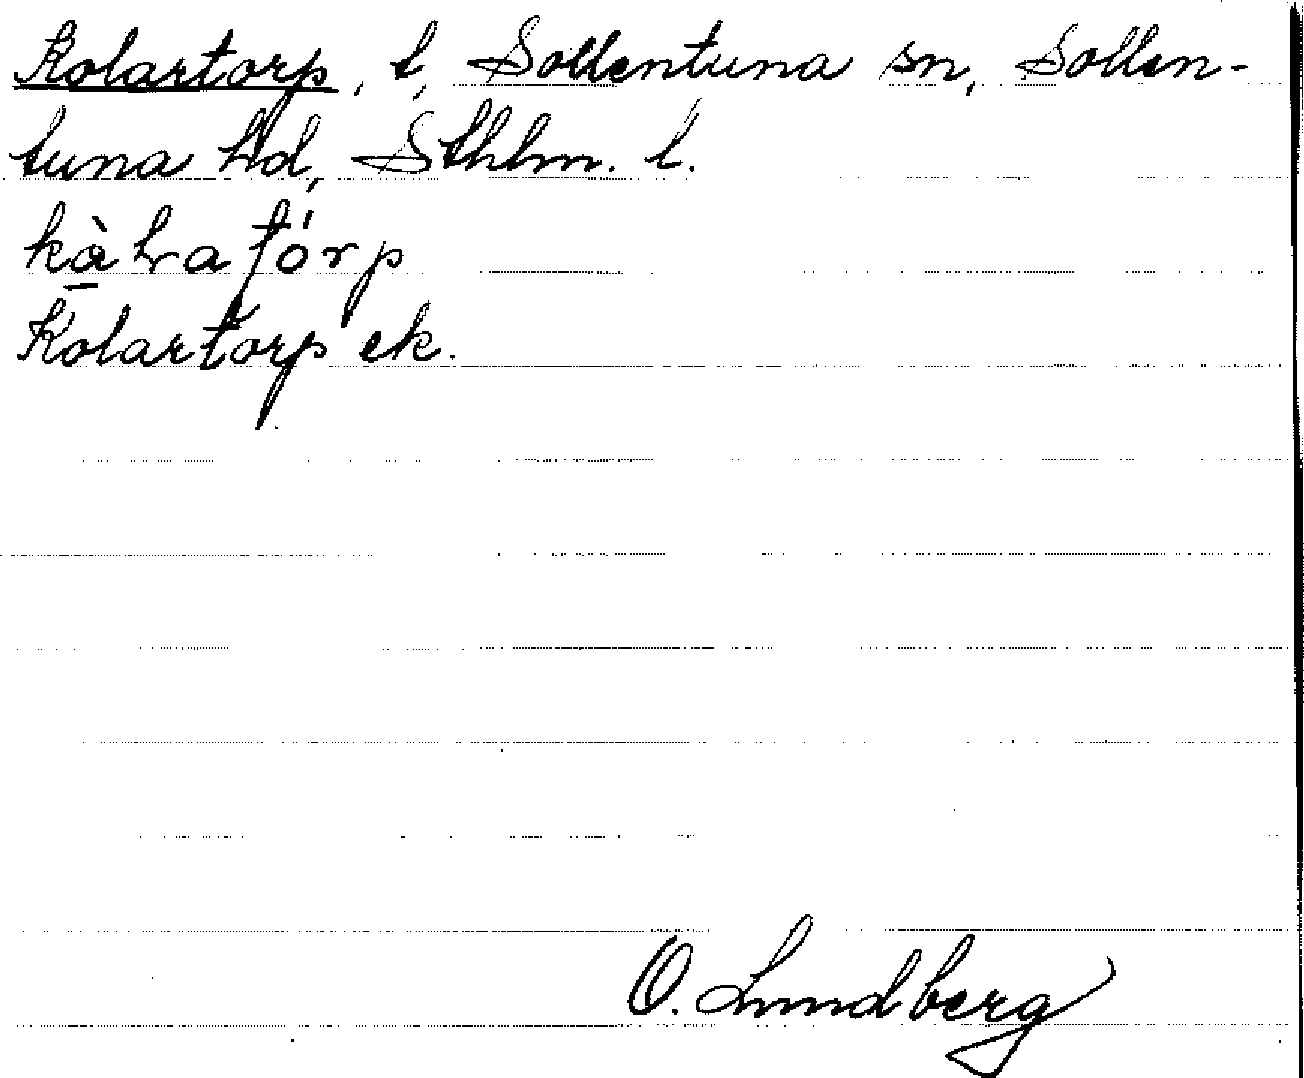 Kolartorp, t, Sollentuna sn, Sollen-
tuna hd, Sthlm. l.
Kolartorp ek.
O. Lundberg